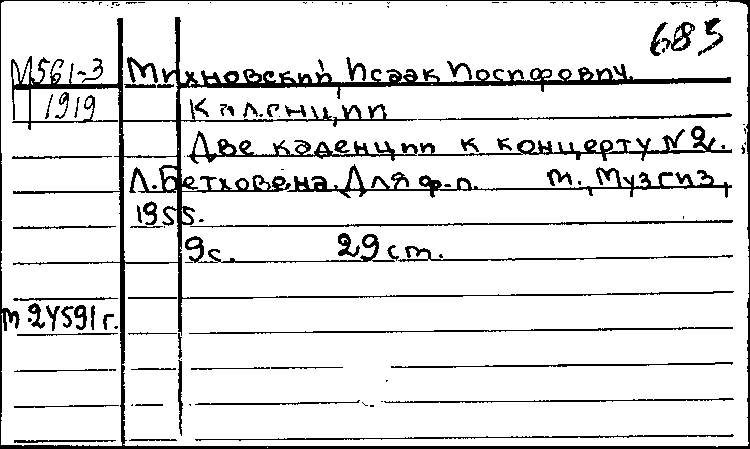 683
М561-3 Михновский, Исаак Иосифович.
1919 Каденции
Две каденции к концерту №2.
Л. Бетховена. Для ф-п. м., Музгиз,
1955.
9с. 29 ст.
м.24591г.